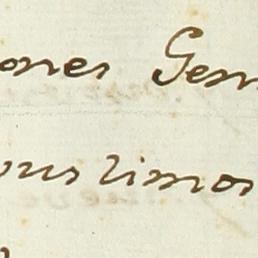 ones Gen
ous limos